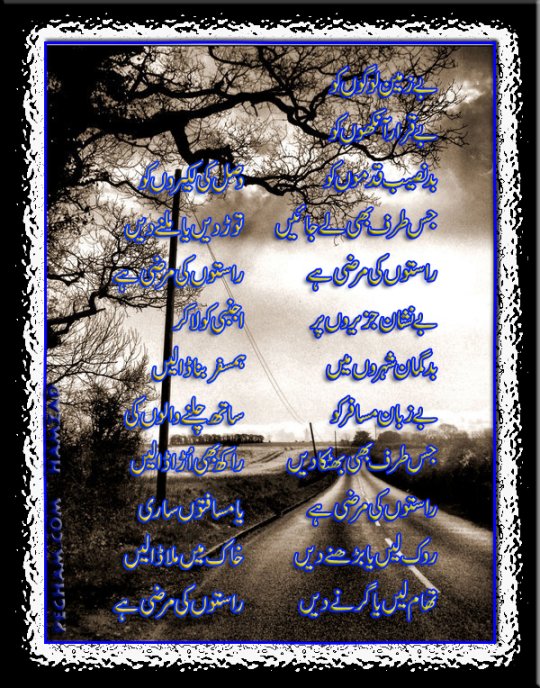 بے زمین لوگوں کو
بے قرار آنکھوں کو
بدنصیب قدموں کو
جس طرف بھی لے جائیں
راستوں کی مرضی ہے
بے نشان جزیروں پر
بدگمان شہروں میں
بے زبان مسافر کو
جس طرف بھی بھٹکا دیں
راستوں کی مرضی ہے
روک لیں یا بڑھنے دیں
تھام لیں یا گرنے دیں
وصل کی لکیروں کو
توڑ دیں یا ملنے دیں
راستوں کی مرضی ہے
اجنبی کو لا کر
ہمسفر بنا ڈالیں
ساتھ چلنے والوں کی
راکھ بھی اُڑا ڈالیں
یا مسافتوں ساری
خاک میں ملا ڈالیں
راستوں کی مرضی ہے